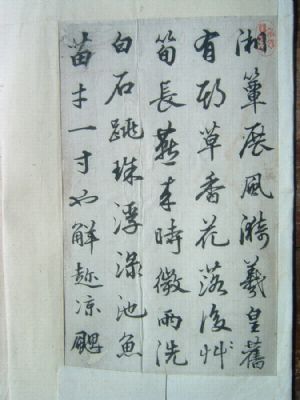 湘簟展風漪羲皇舊
有期草香花落後艸
筍長燕来時微雨洗
白石跳珠浮渌池魚
苗才一寸也解趂凉颸